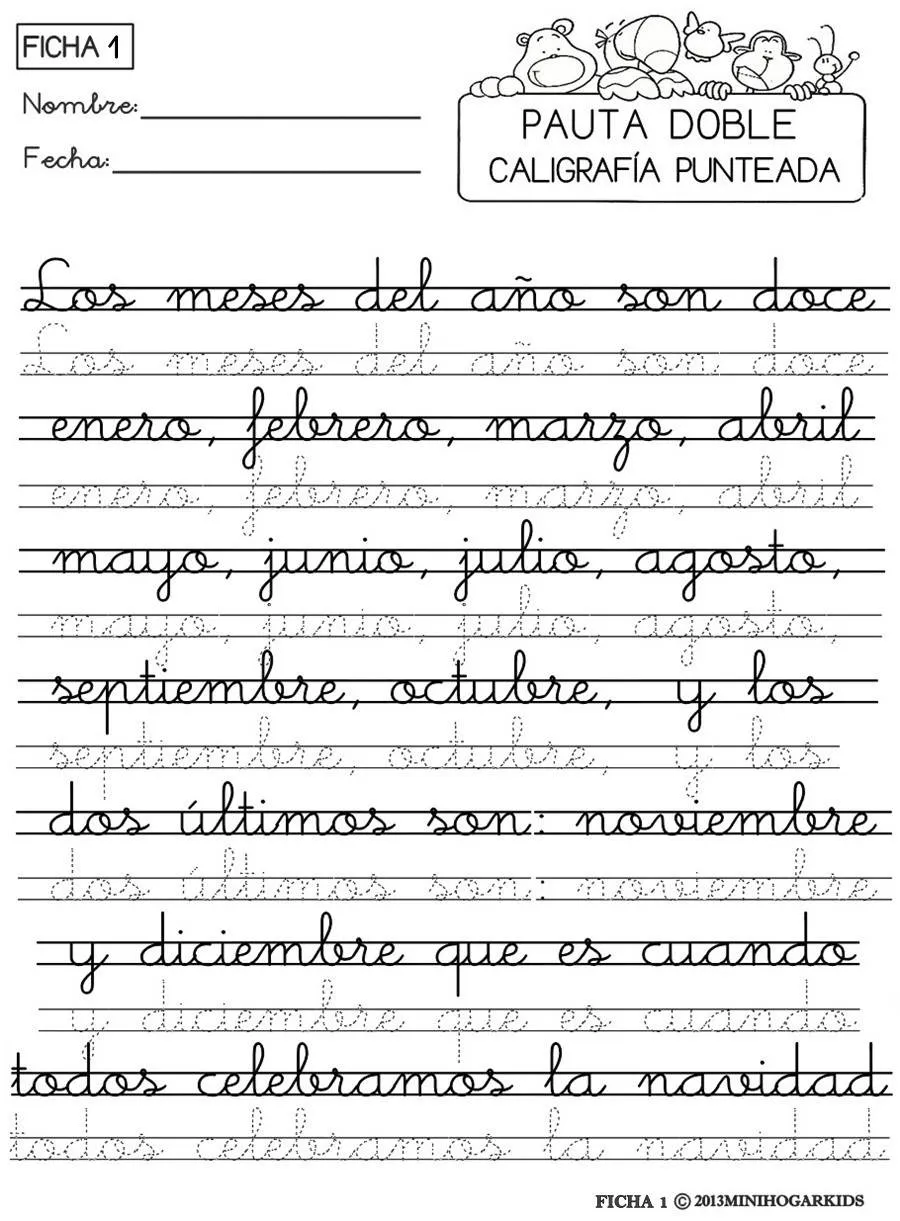 FICHA 1
Nombre:
Fecha:
PAUTA DOBLE
CALIGRAFÍA PUNTEADA
Los meses del año son doce
Los meses del año son doce
enero, febrero, marzo, abril
enero, febrero, marzo, abril
mayo, junio, julio, agosto,
mayo, junio, julio, agosto,
septiembre, octubre, y los
septiembre, octubre, y los
dos últimos son: noviembre
dos últimos son: noviembre
y diciembre que es cuando
y diciembre que es cuando
todos celebramos la navidad
todos celebramos la navidad
FICHA 1 © 2013MINIHOGARKIDS